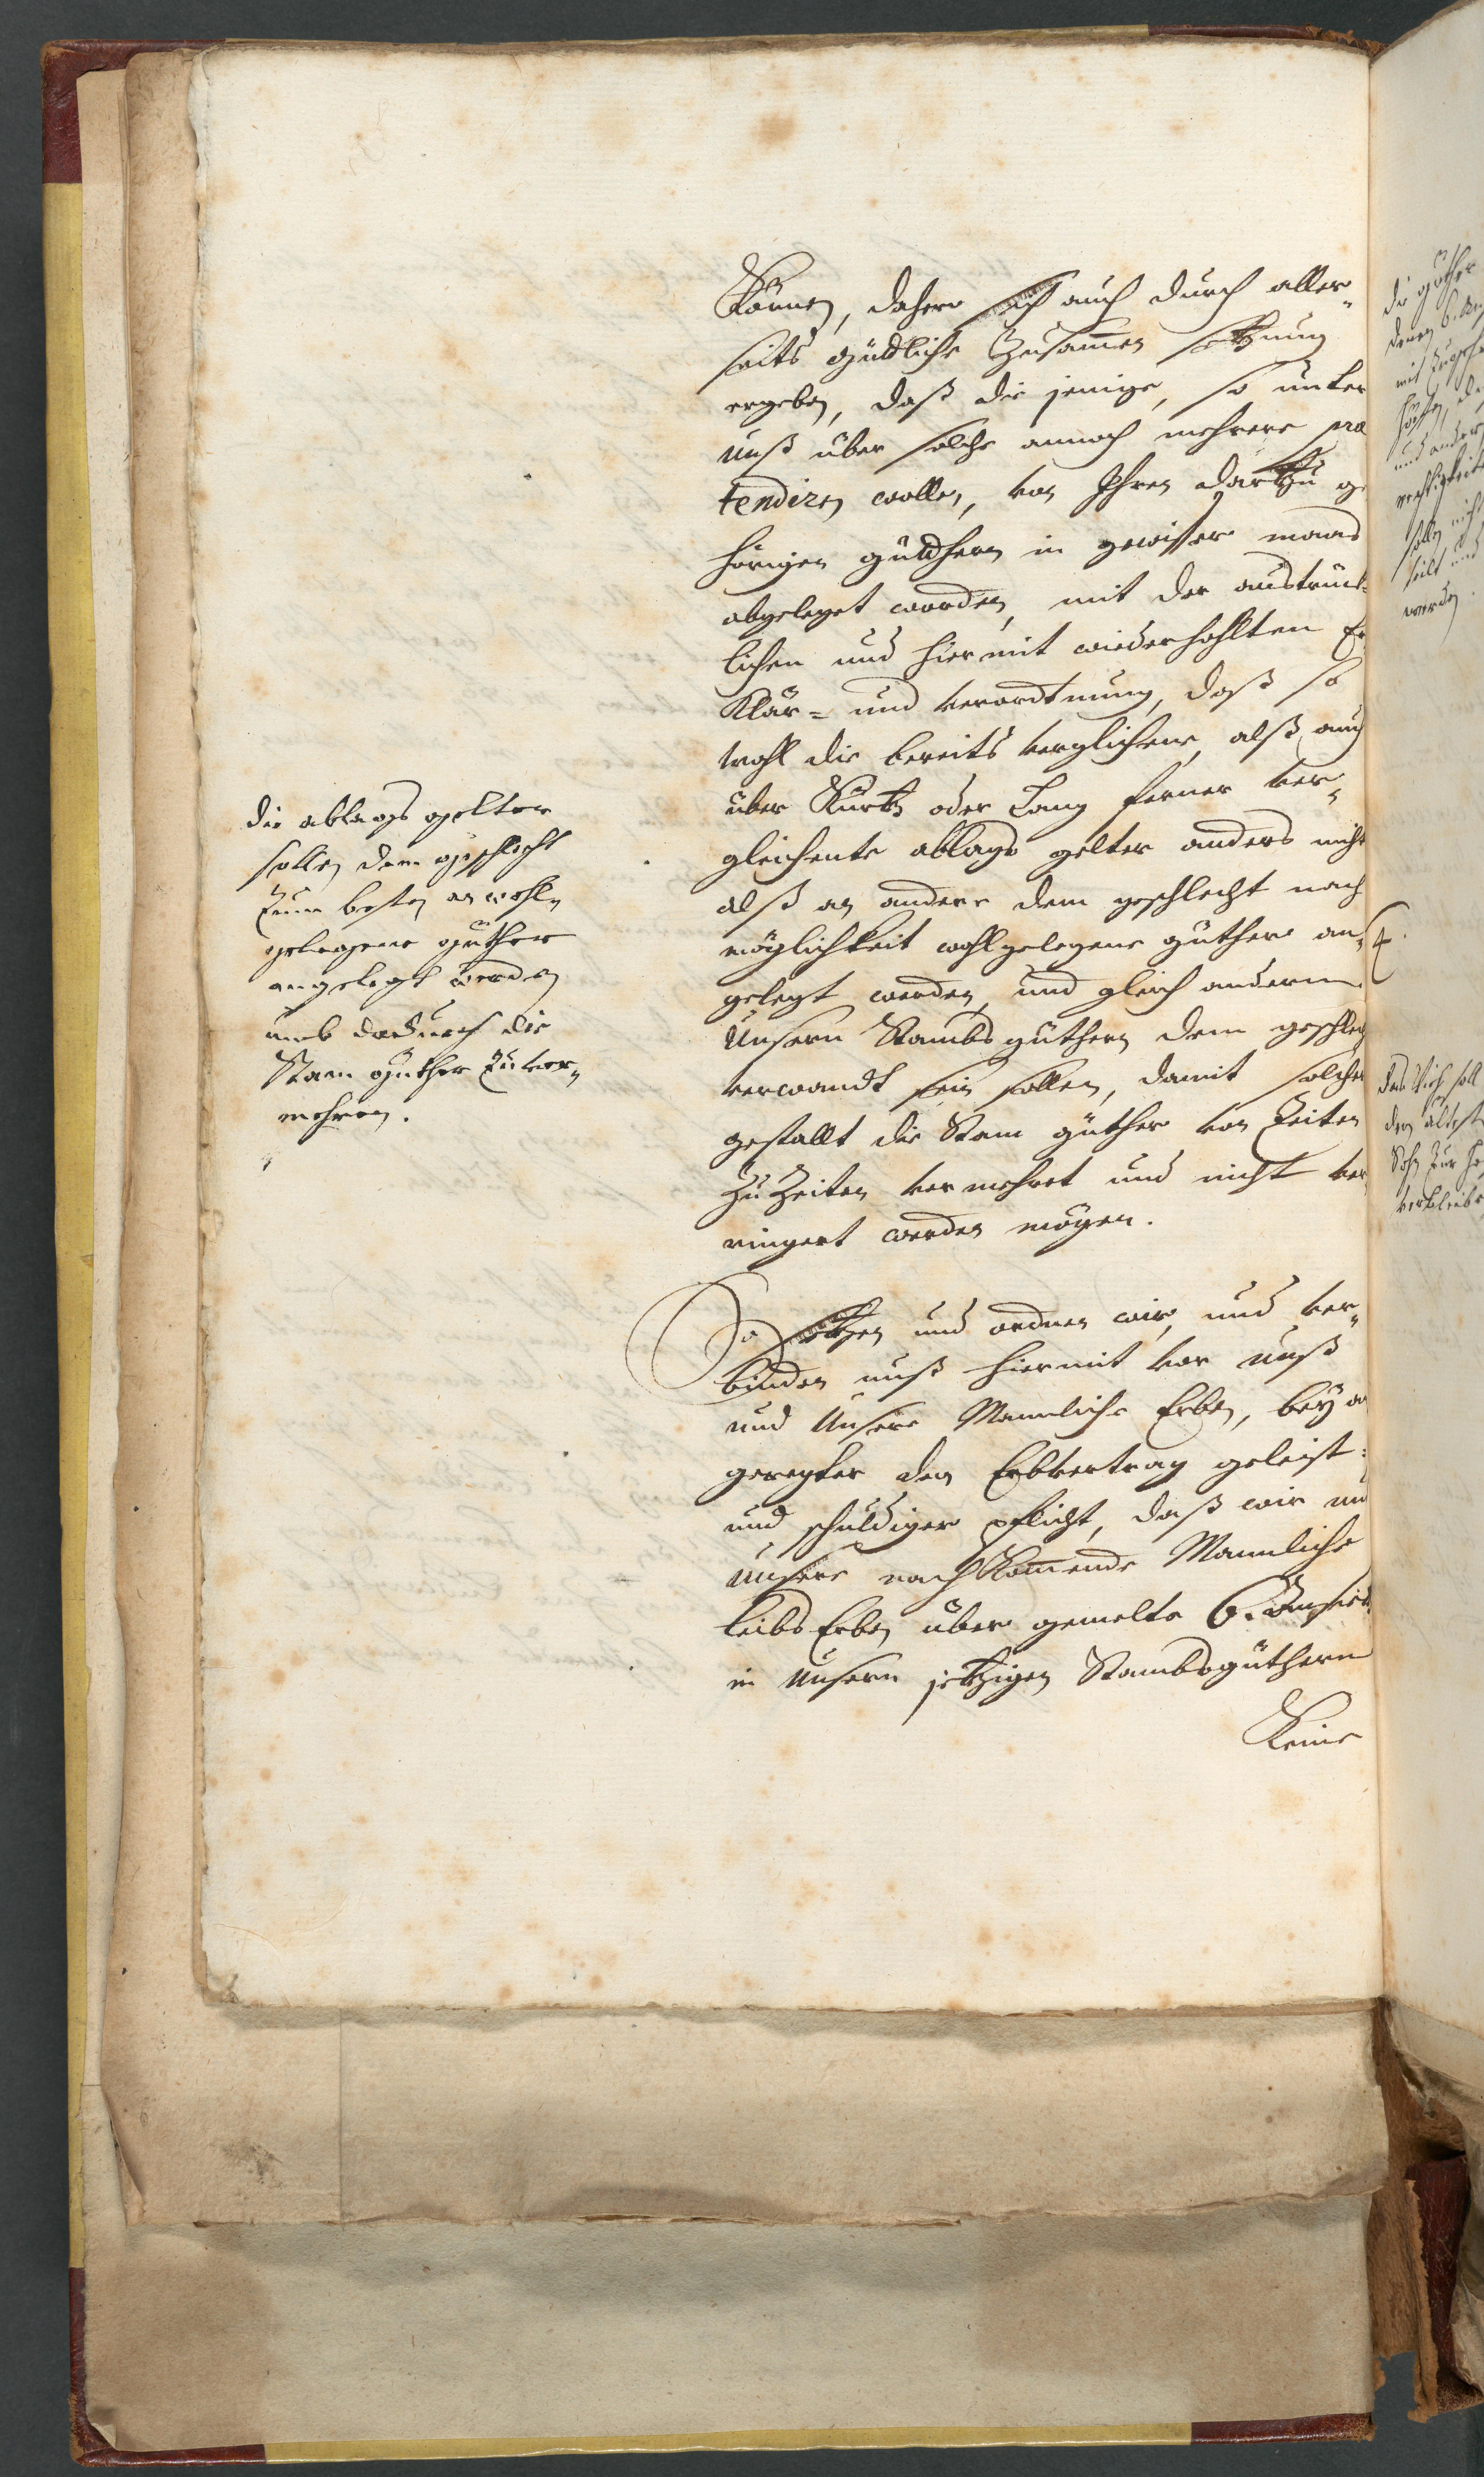 Können, dahero sich auch durch aller„
seits güdtliche Zusammen setzung
ergeben, daß die jenige, so unter
unß über solche annoch mehrere præ
tendiren wollen, von Ihren dartzu ge
hörigen güdthern in gewisser maas
abgeleget worden, mit der austrück„
lichen und hiermit wiederhohlten Er
Klär- und verordtnung, daß so
wohl die bereits verglichene, alß auch
über Kurtz oder Lang ferner ver„
gleichente ablags gelter anders nicht
alß an andere dem geschlecht nach
möglichkeit wohlgelegene güthere an„
gelegt werden, und gleich anderen
Unsern Stambs güthern dem geschlecht
verwandt sein sollen, damit solcher
gestallt die Stam güther von Zeiten
zu Zeiten vermehret und nicht ver
ringert werden mögen.
die ablags gelter
sollen dem geschlecht
zum besten an wohl„
gelegene güther
angelegt werden
umb dardurch die
Stam güther zu ver„
mehren.
So setzen und ordnen wir, und ver„
binden unß hiermit vor unß
und Unsere Mannliche Erben, bey
geregter den Erbvertrag geleist:
und schuldiger pflicht, daß wir und
Unsere nach Kommende Mannliche
leibs Erben über gemelte 6.
in Unsern jetzigen Stambsgüthern
Keine
4.
die güther
denen 6.
und andere
sollen nicht
werden.
soll
dem ältest
Sohn zur
verbleiben